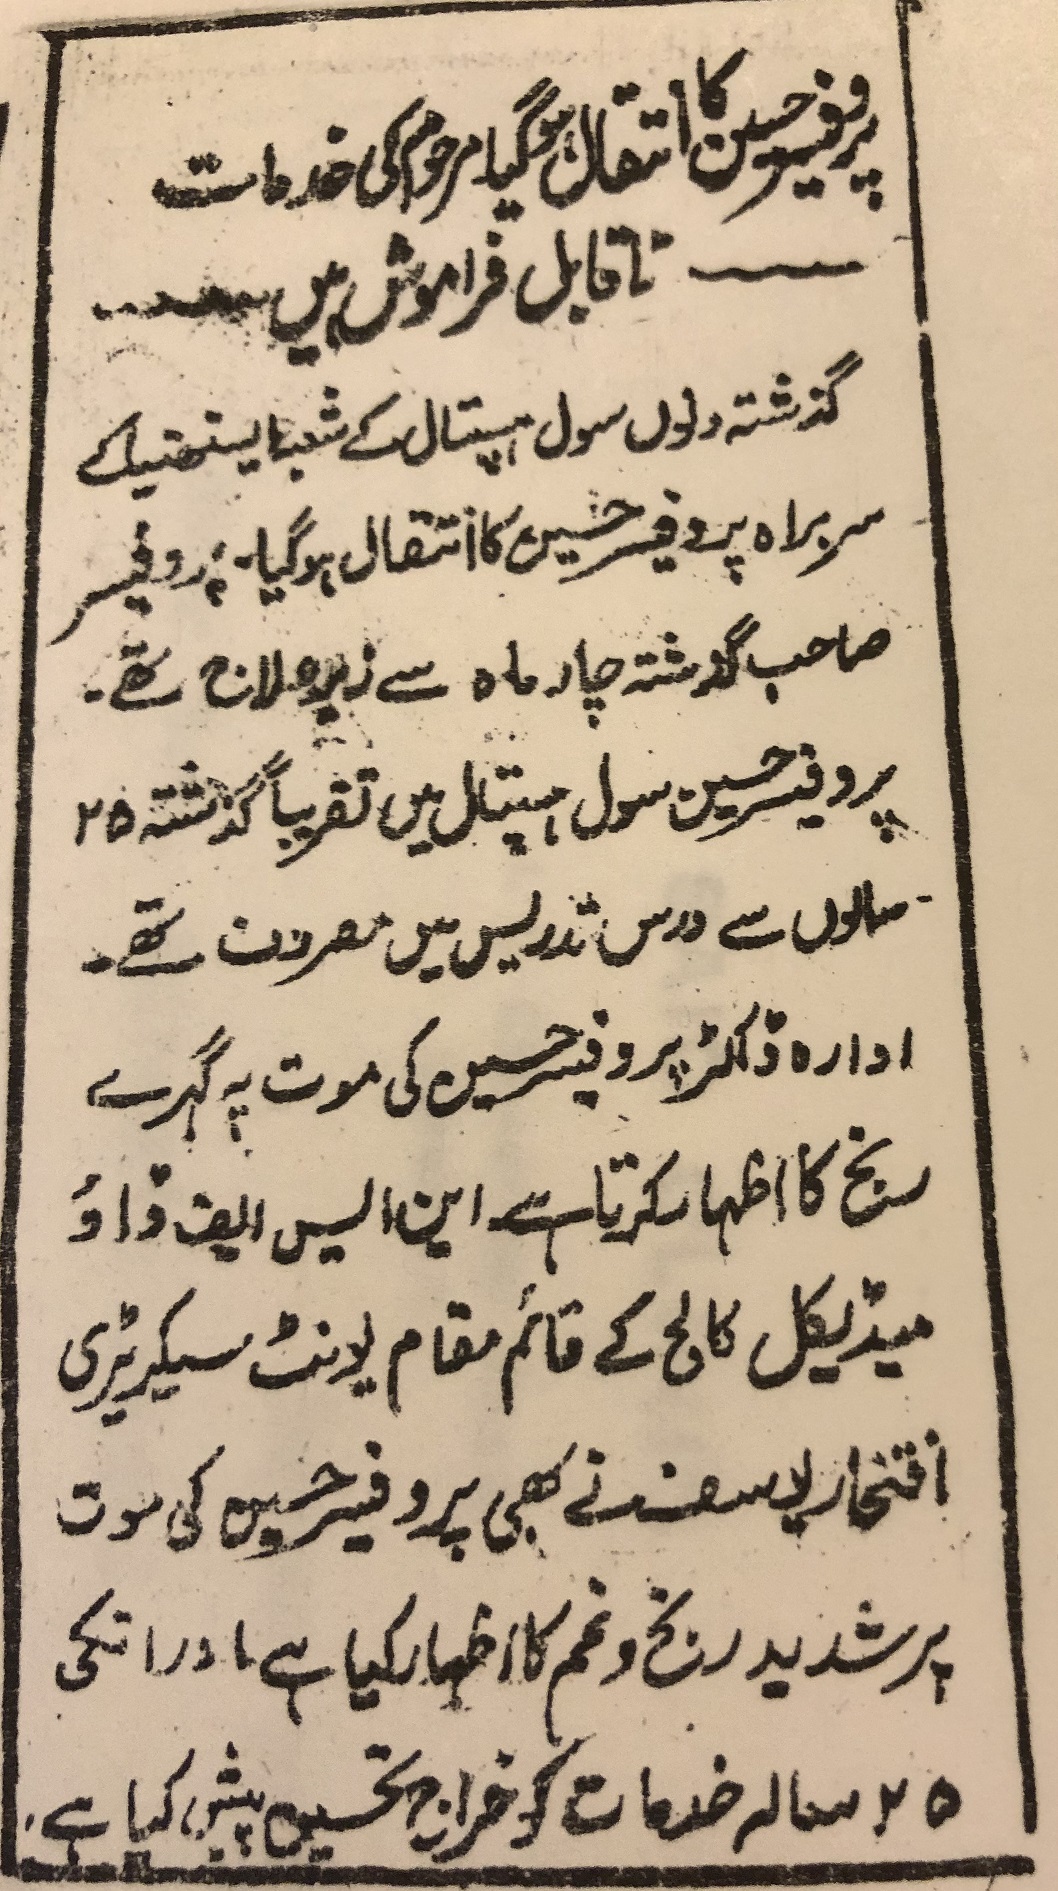 پروفیسر حسین کا انتقال ہوگیا مرحوم کی خدمات
ناقابل فراموش ہیں
گذشتہ دنوں سول ہسپتال کے شعبہ ایستھیٹک کے
سربراہ پروفیسر حسین کا انتقال ہوگیا۔ پروفیسر
صاحب گذشتہ چار ماہ سے زیر علاج تھے۔
پروفیسر حسین سول ہسپتال میں تقریباً گذشتہ ۲۵
سالوں سے درس تدریس میں مصروف تھے۔
ادارہ ڈاکٹر پروفیسر حسین کی موت پہ گہرے
رنج کا اظہار کرتا ہے۔ این ایس ایف ڈاؤ
میڈیکل کالج کے قائم مقام یونٹ سیکریٹری
افتخار یوسف نے بھی پروفیسر حسین کی موت
پر شدید رنج و غم کا اظہار کیا ہے اور انکی
۲۵ سالہ خدمات کو خراج تحسین پیش کیا ہے۔